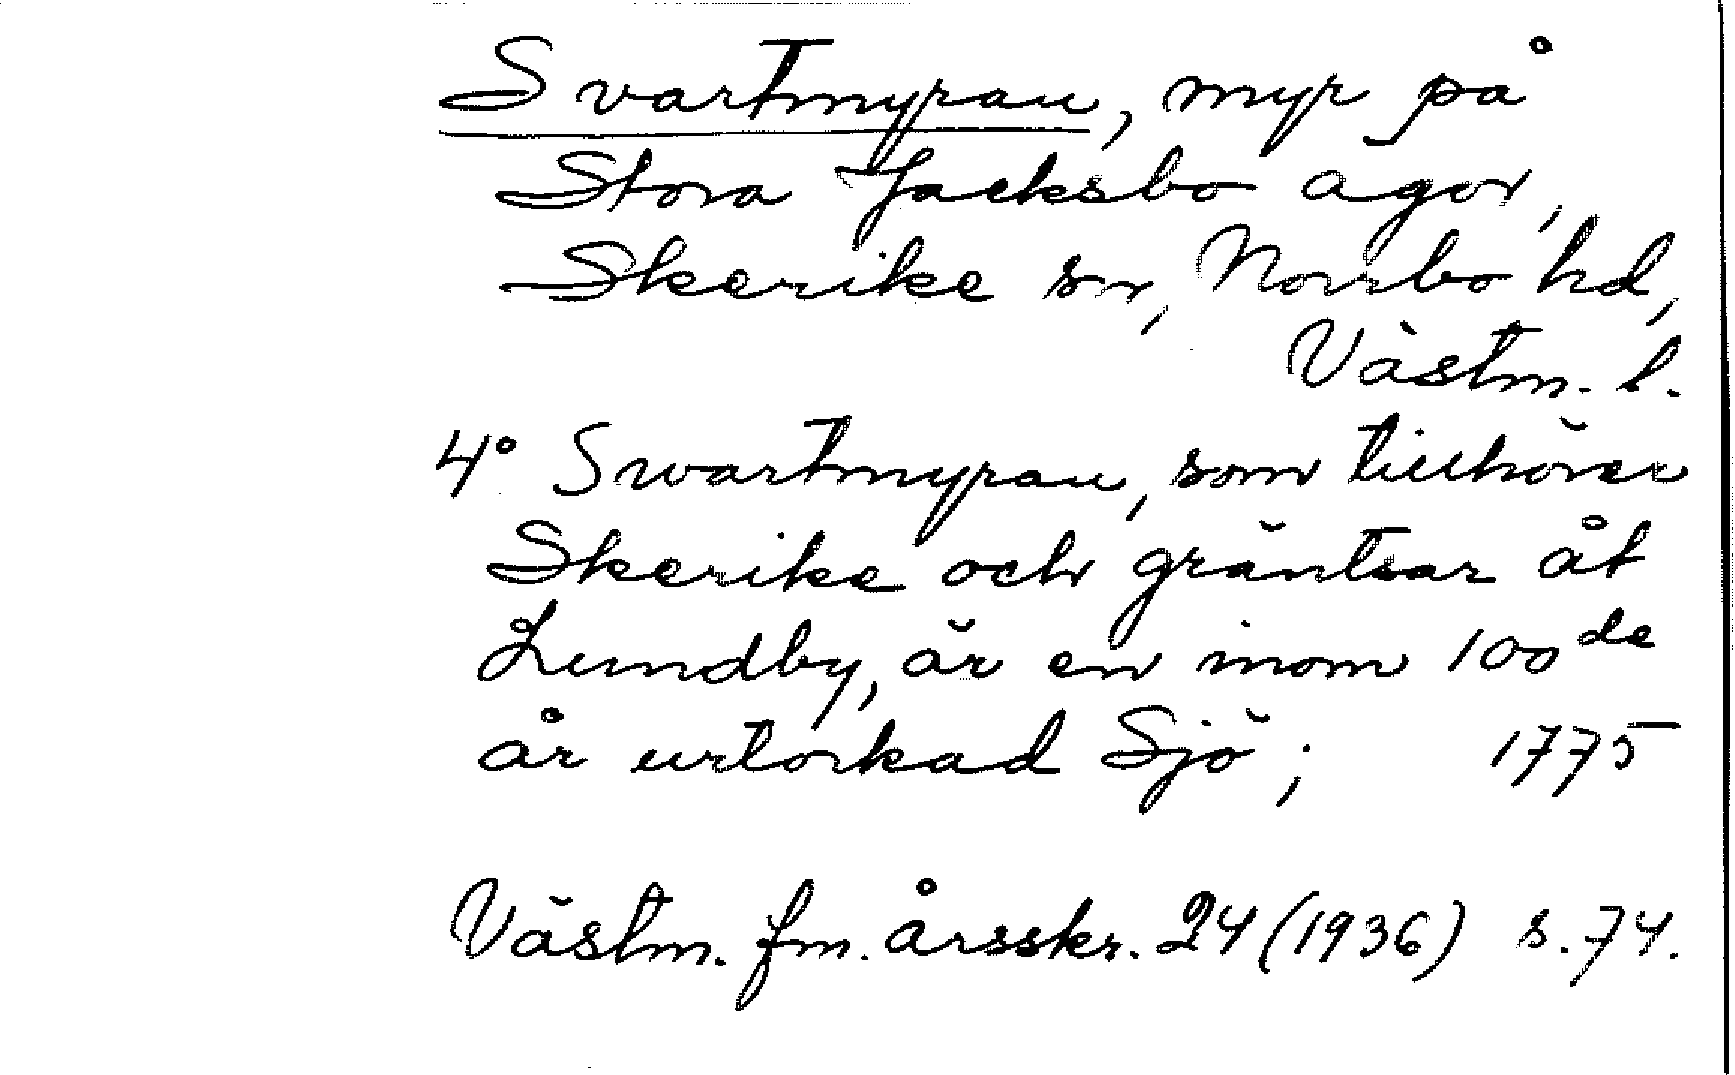 Svartmyran, myr på
Stora Jacksbo ägor,
Skerike sn, Norrbo hd,
Västm. l.
4° Swartmyran, som tillhörer
Skerike och gräntsar åt
Lundby, är en inom 100de
år urtorkad Sjö; 1775
Västm. fm. årsskr. 24 (1936) s. 74.